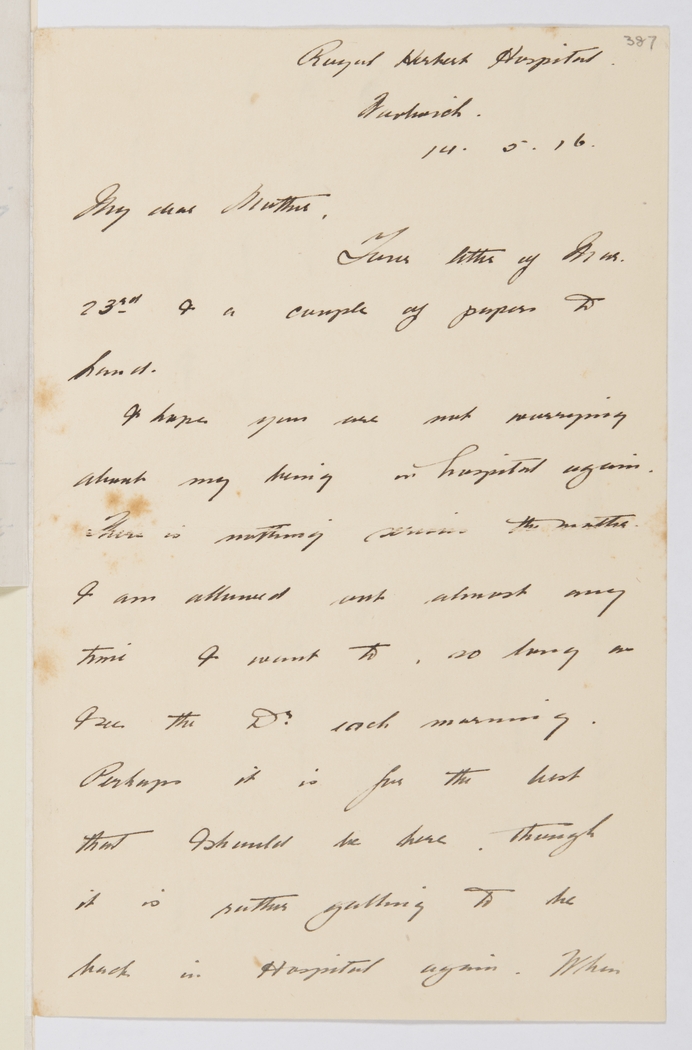 387
Royal Herbert Hospital.
Woolwich.
14. 5. 16.
My dear Mother,
Your letter of Mar.
23rd & a couple of papers to
hand.
I hope you are not worrying
about my being in hospital again.
There is nothing serious the matter.
I am allowed out almost any
time I want to, so long as
I see the Dr. each morning.
Perhaps it is for the best
that I should be here, though
it is rather galling to be
back in Hospital again. When